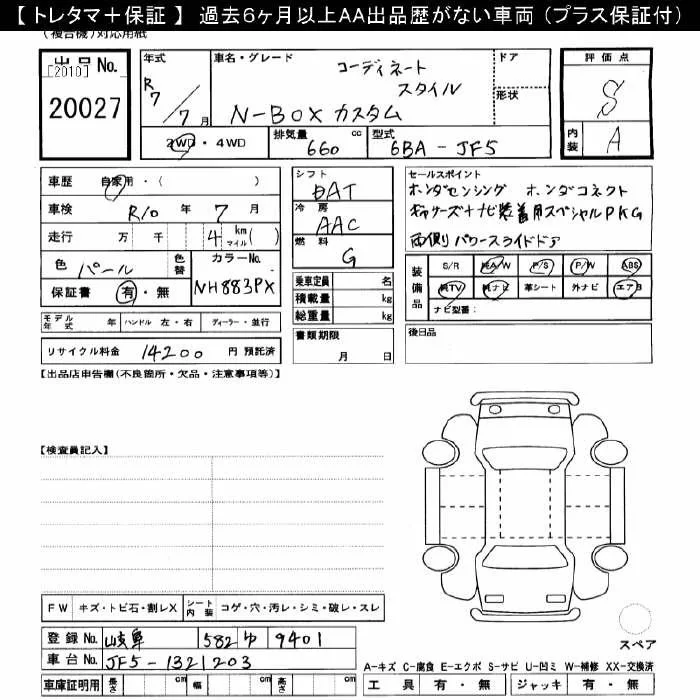 【 トレタマ＋保証 】 過去6ヶ月以上AA出品歴がない車両（プラス保証付）
（複合機）対応用紙
出品No. [2010] 20027
年式 R7/7月
車名・グレード コーディネート スタイル N-BOX カスタム
ドア
形状
評価点 S
内装 A
2WD・4WD
排気量 660 cc
型式 6BA-JF5
車歴 自家用・( )
車検 R10年 7月
走行 万 千 4 km マイル( )
色 パール 色替 カラーNo. NH883PX
保証書 有・無
シフト DAT
冷房 AAC
燃料 G
乗車定員 名
積載量 kg
総重量 kg
セールスポイント
ホンダセンシング ホンダコネクト
ギャザーズナビ装着用スペシャルPKG
両側パワースライドドア
装備品 S/R 純A/W P/S P/W ABS
純TV 純ナビ 革シート 外ナビ エアB
ナビ型番：
モデル年式 年 ハンドル 左・右 ディーラー・並行
書類期限 月 日
後日品
リサイクル料金 14200 円 預託済
【出品店申告欄(不良箇所・欠品・注意事項等)】
【検査員記入】
FW キズ・トビ石・割レX シート内装 コゲ・穴・汚レ・シミ・破レ・スレ
スペア
登録No. 岐阜 582 ゆ 9401
車台No. JF5-1321203
A-キズ C-腐食 E-エクボ S-サビ U-凹ミ W-補修 XX-交換済
車庫証明用 長さ cm 幅 cm 高さ cm
工具 有・無 ジャッキ 有・無